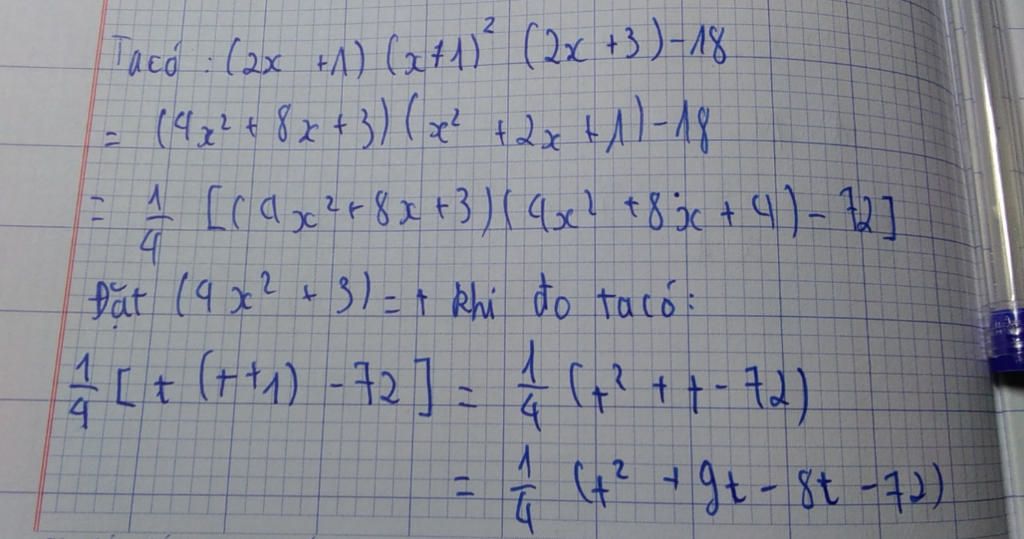 Ta có : (2x + 1) (x+1)² (2x + 3) - 18
= (4x² + 8x + 3) (x² + 2x + 1) - 18
= 1/4 [(4x² + 8x + 3) (4x² + 8x + 4) - 72]
Đặt (4x² + 3) = t khi đo ta có:
1/4 [t (t+1) - 72] = 1/4 (t² + t - 72)
= 1/4 (t² + 9t - 8t - 72)